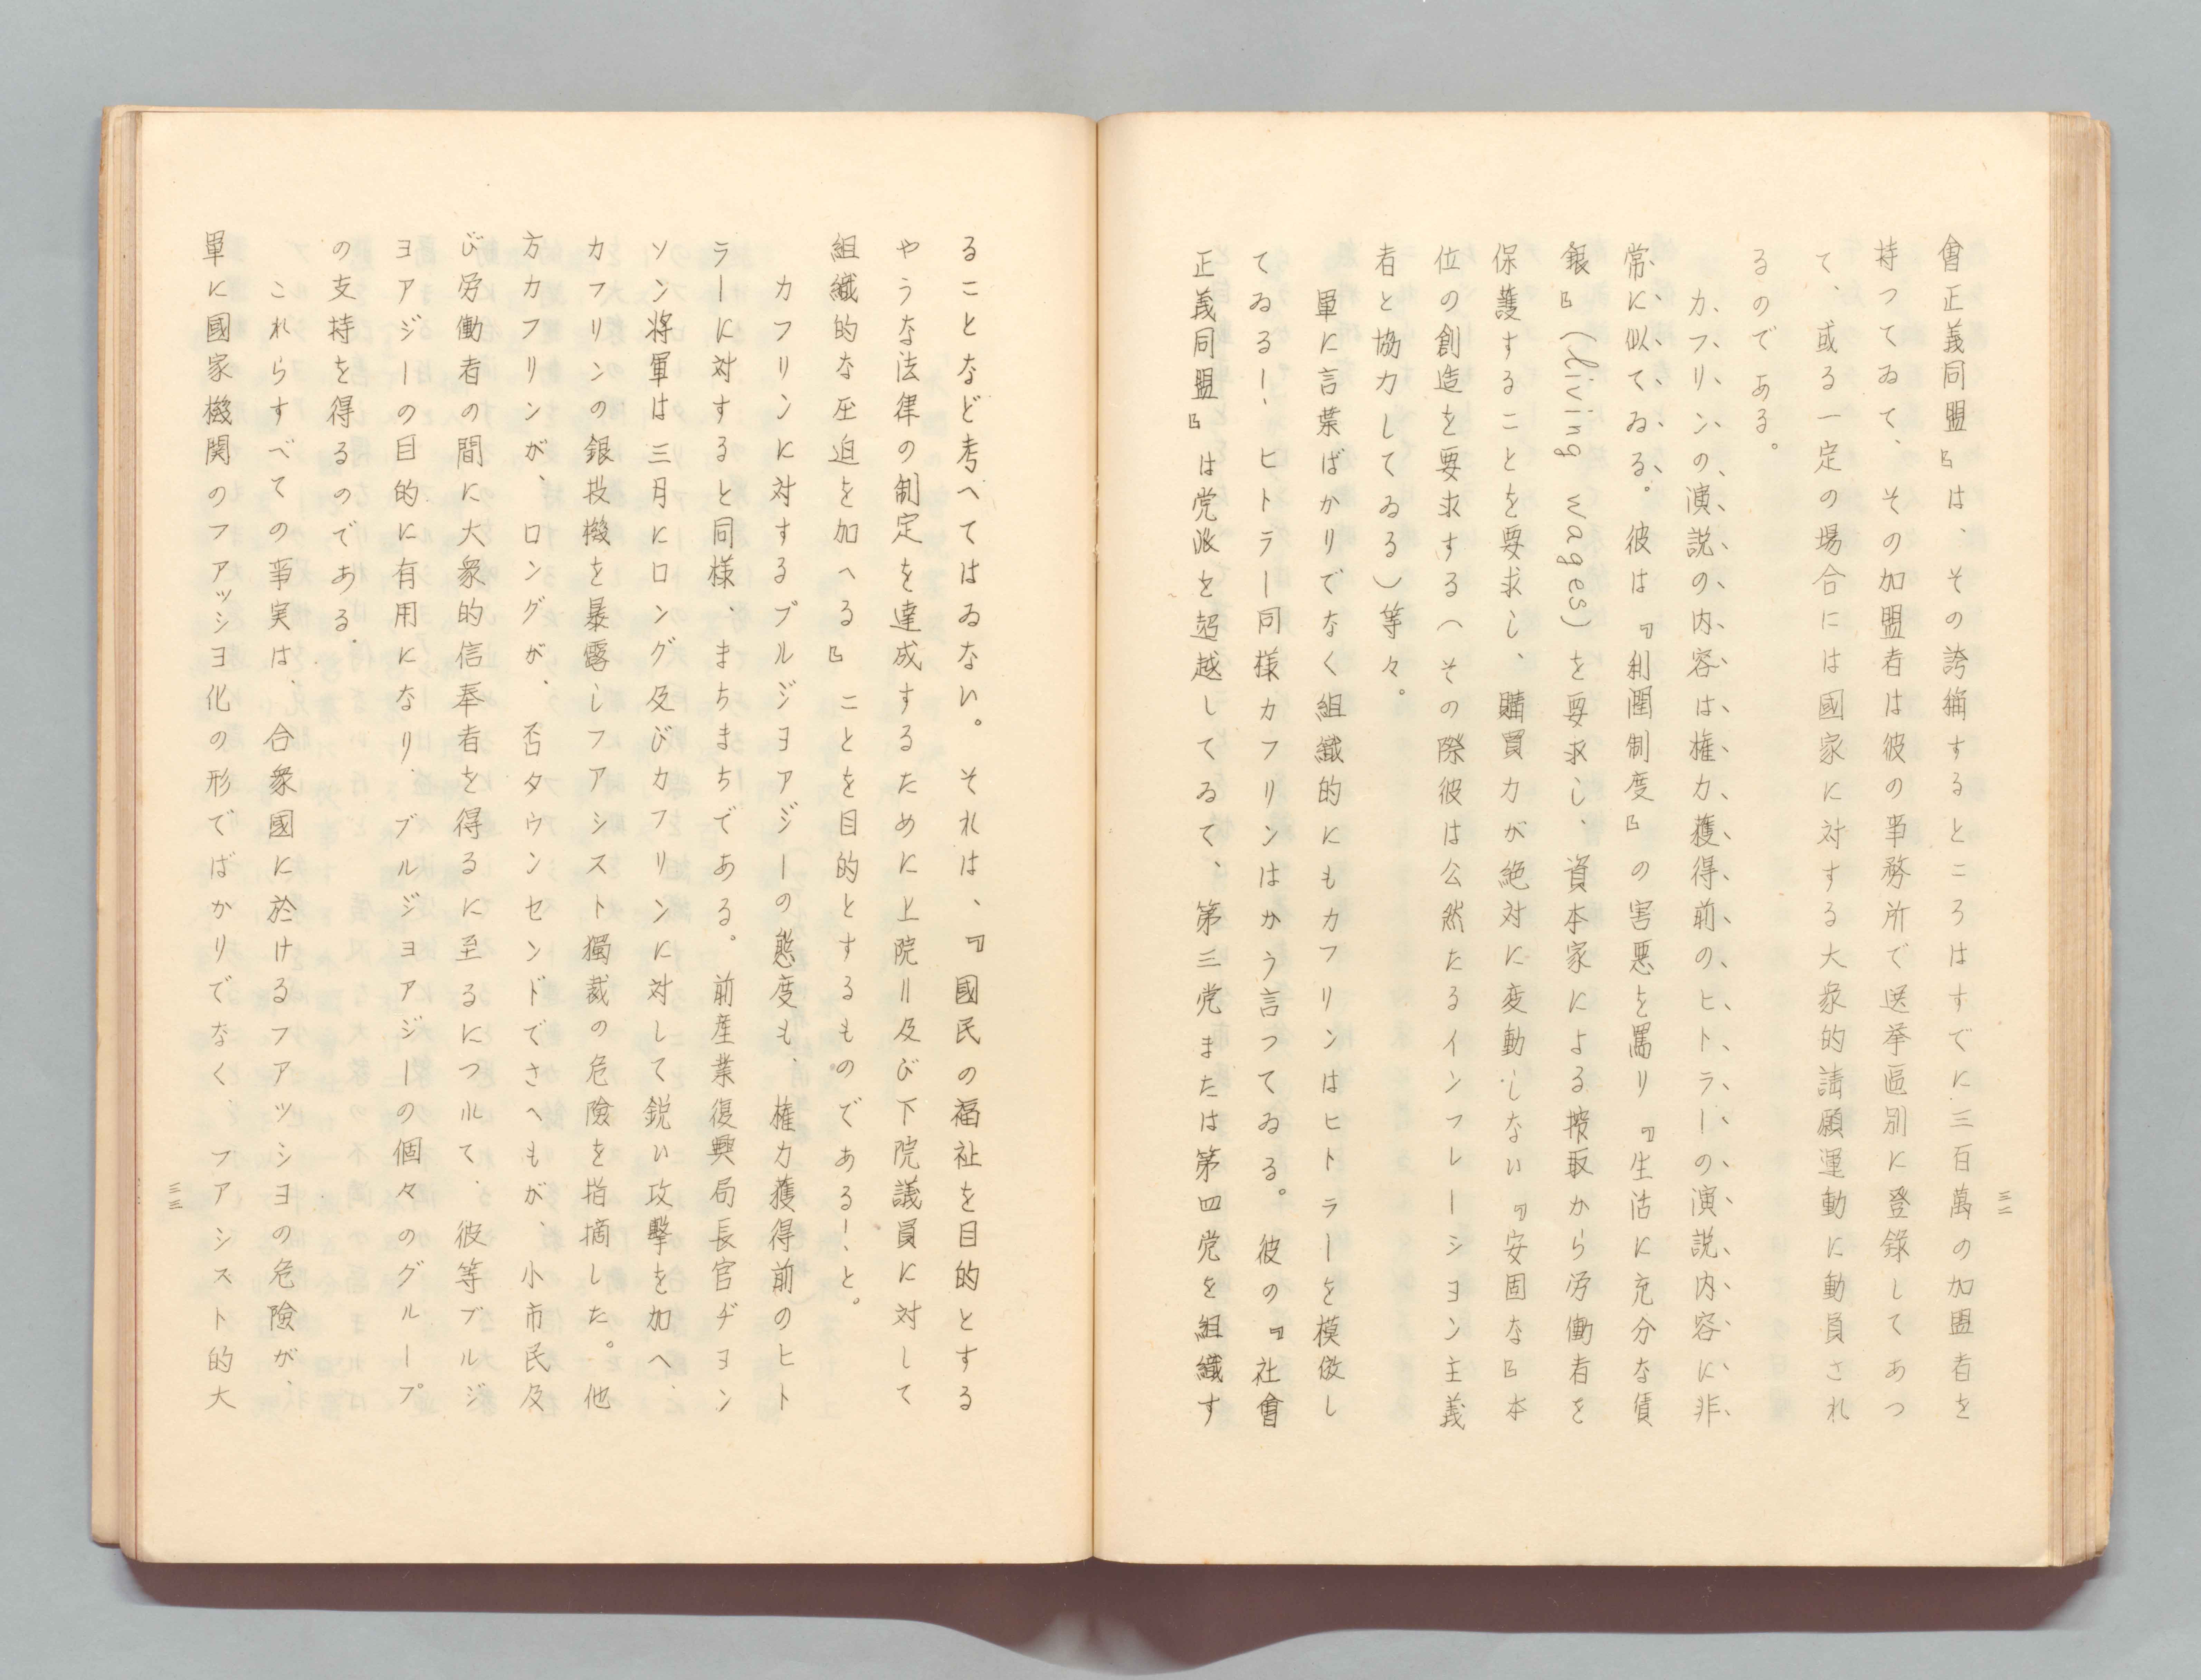 三二
會正義同盟』は、その誇稱するところはすでに三百萬の加盟者を
持つてゐて、その加盟者は彼の事務所で選挙區別に登録してあつ
て、或る一定の場合には國家に対する大衆的請願運動に動員され
るのである。
カフリンの演説の内容は権力獲得前のヒトラーの演説内容に非
常に似てゐる。彼は『利潤制度』の害悪を罵り『生活に充分な賃
銀』(living wages)を要求し、資本家による搾取から労働者を
保護することを要求し、購買力が絶対に変動しない『安固な』本
位の創造を要求する(その際彼は公然たるインフレーシヨン主義
者と協力してゐる)等々。
單に言葉ばかりでなく組織的にもカフリンはヒトラーを模倣し
てゐるー、ヒトラー同様カフリンはかう言つてゐる。彼の『社會
正義同盟』は党派を超越してゐて、第三党または第四党を組織す
ることなど考へてはゐない。それは、『國民の福祉を目的とする
やうな法律の制定を達成するために上院〃及び下院議員に対して
組織的な圧迫を加へる』ことを目的とするものであるー、と。
カフリンに対するブルジヨアジーの態度も、権力獲得前のヒト
ラーに対すると同様、まちまちである。前産業復興局長官ヂヨン
ソン将軍は三月にロング及びカフリンに対して鋭い攻撃を加へ、
カフリンの銀投機を暴露しフアシスト獨裁の危険を指摘した。他
方カフリンが、ロングが、否タウンセンドでさへもが、小市民及
び労働者の間に大衆的信奉者を得るに至るにつれて、彼等ブルジ
ヨアジーの目的に有用になり、ブルジヨアジーの個々のグループ
の支持を得るのである。
これらすべての事実は、合衆國に於けるフアツシヨの危険が、
單に國家機関のフアッシヨ化の形でばかりでなく、フアシスト的大
三三